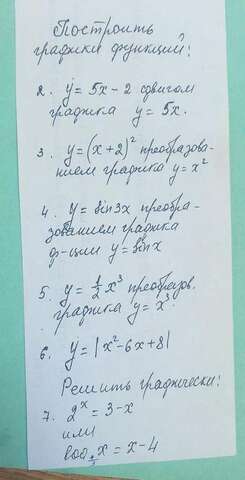 Построить
графики функций:
2. y = 5x - 2 сдвигом
графика y = 5x.
3. y = (x + 2)² преобразова-
нием графика y = x²
4. y = sin3x преобра-
зованием графика
ф-ции y = sinx
5. y = ½ x³ преобразов.
графика y = x³
6. y = |x² - 6x + 8|
Решить графически:
7. 2ˣ = 3 - x
или
log x = x - 4